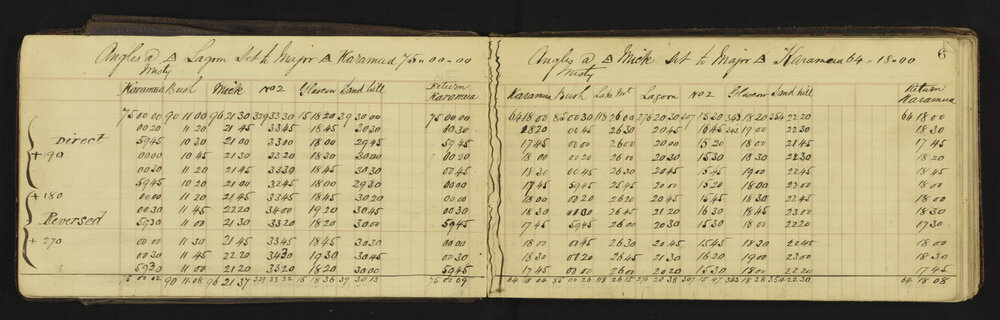 Angles @ △ Lagoon Set to Major △ Karamua 75-00-00
Misty
Karamua Bush Mick No2 Glascow Sand hill Return Karamua
75 00 00 90 11 00 96 21 30 329 33 30 15 18 20 39 30 00 75 00 00
00 20 11 20 21 45 33 45 18 45 30 30 00 30
Direct 59 45 10 30 21 00 33 00 18 00 29 45 59 45
+ 90 00 00 10 45 21 30 33 20 18 30 30 00 00 20
00 30 11 20 21 45 33 30 18 45 30 30 00 45
59 45 10 20 21 00 32 45 18 00 29 30 00 00
+ 180 00 00 11 20 21 45 33 45 18 45 30 20 00 00
00 30 11 45 22 20 34 00 19 20 30 45 00 30
Reversed 59 30 11 00 21 30 33 20 18 20 30 00 59 45
+ 270 00 00 11 30 21 45 33 45 18 45 30 30 00 00
00 30 11 45 22 20 34 30 19 30 30 45 00 30
59 30 11 00 21 20 33 20 18 20 30 00 59 45
75 00 02 90 11 08 96 21 37 329 33 32 15 18 36 39 30 13 75 00 09
6
Angles @ △ Mick Set to Major △ Karamua 64-18-00
Misty
Karamua Bush Lake Lagoon No2 Glascow Sand hill Return Karamua
64 18 00 85 00 30 118 26 00 276 20 30 307 15 30 343 18 20 354 22 20 64 18 00
18 20 00 45 26 30 20 45 16 45 343 19 00 22 45 18 30
17 45 00 00 26 00 20 00 15 20 18 00 21 45 17 45
18 00 00 20 26 00 20 30 15 30 18 30 22 30 18 20
18 30 00 45 26 30 20 45 15 45 19 00 22 45 18 45
17 45 59 45 25 45 20 00 15 20 18 00 22 00 18 00
18 00 00 20 26 20 20 45 15 45 18 30 22 45 18 00
18 30 01 30 26 45 21 20 16 30 18 45 23 00 18 30
17 45 59 45 26 00 20 30 15 30 18 00 22 20 17 30
18 00 00 45 26 30 20 45 15 45 18 30 22 45 18 00
18 30 01 20 26 45 21 30 16 20 19 00 23 00 18 30
17 45 00 00 26 00 20 20 15 30 18 00 22 20 17 45
64 18 00 85 00 26 118 26 15 276 20 38 307 15 47 343 18 28 354 22 30 64 18 08